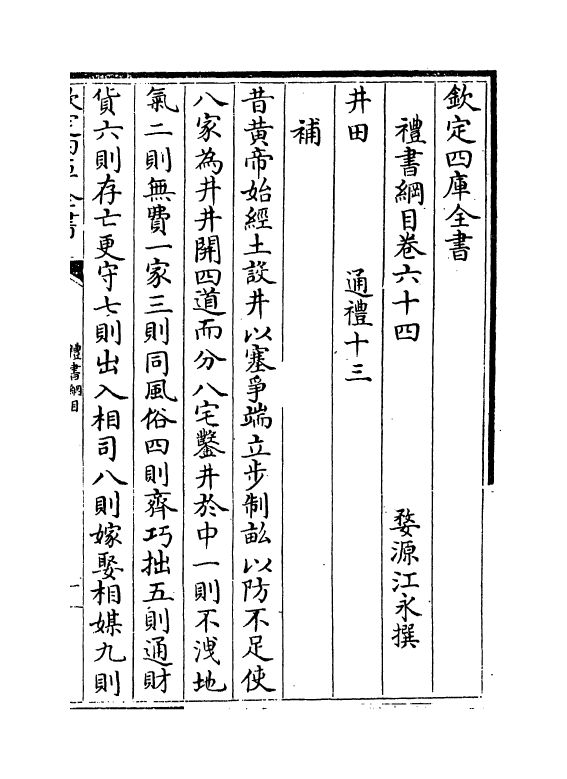 欽定四庫全書
禮書綱目卷六十四　婺源江永撰
井田　通禮十三
補
昔黃帝始經土設井以塞爭端立步制畝以防不足使
八家為井井開四道而分八宅鑿井於中一則不洩地
氣二則無費一家三則同風俗四則齊巧拙五則通財
貨六則存亡更守七則出入相司八則嫁娶相媒九則
欽定四庫全書
禮書綱目
一